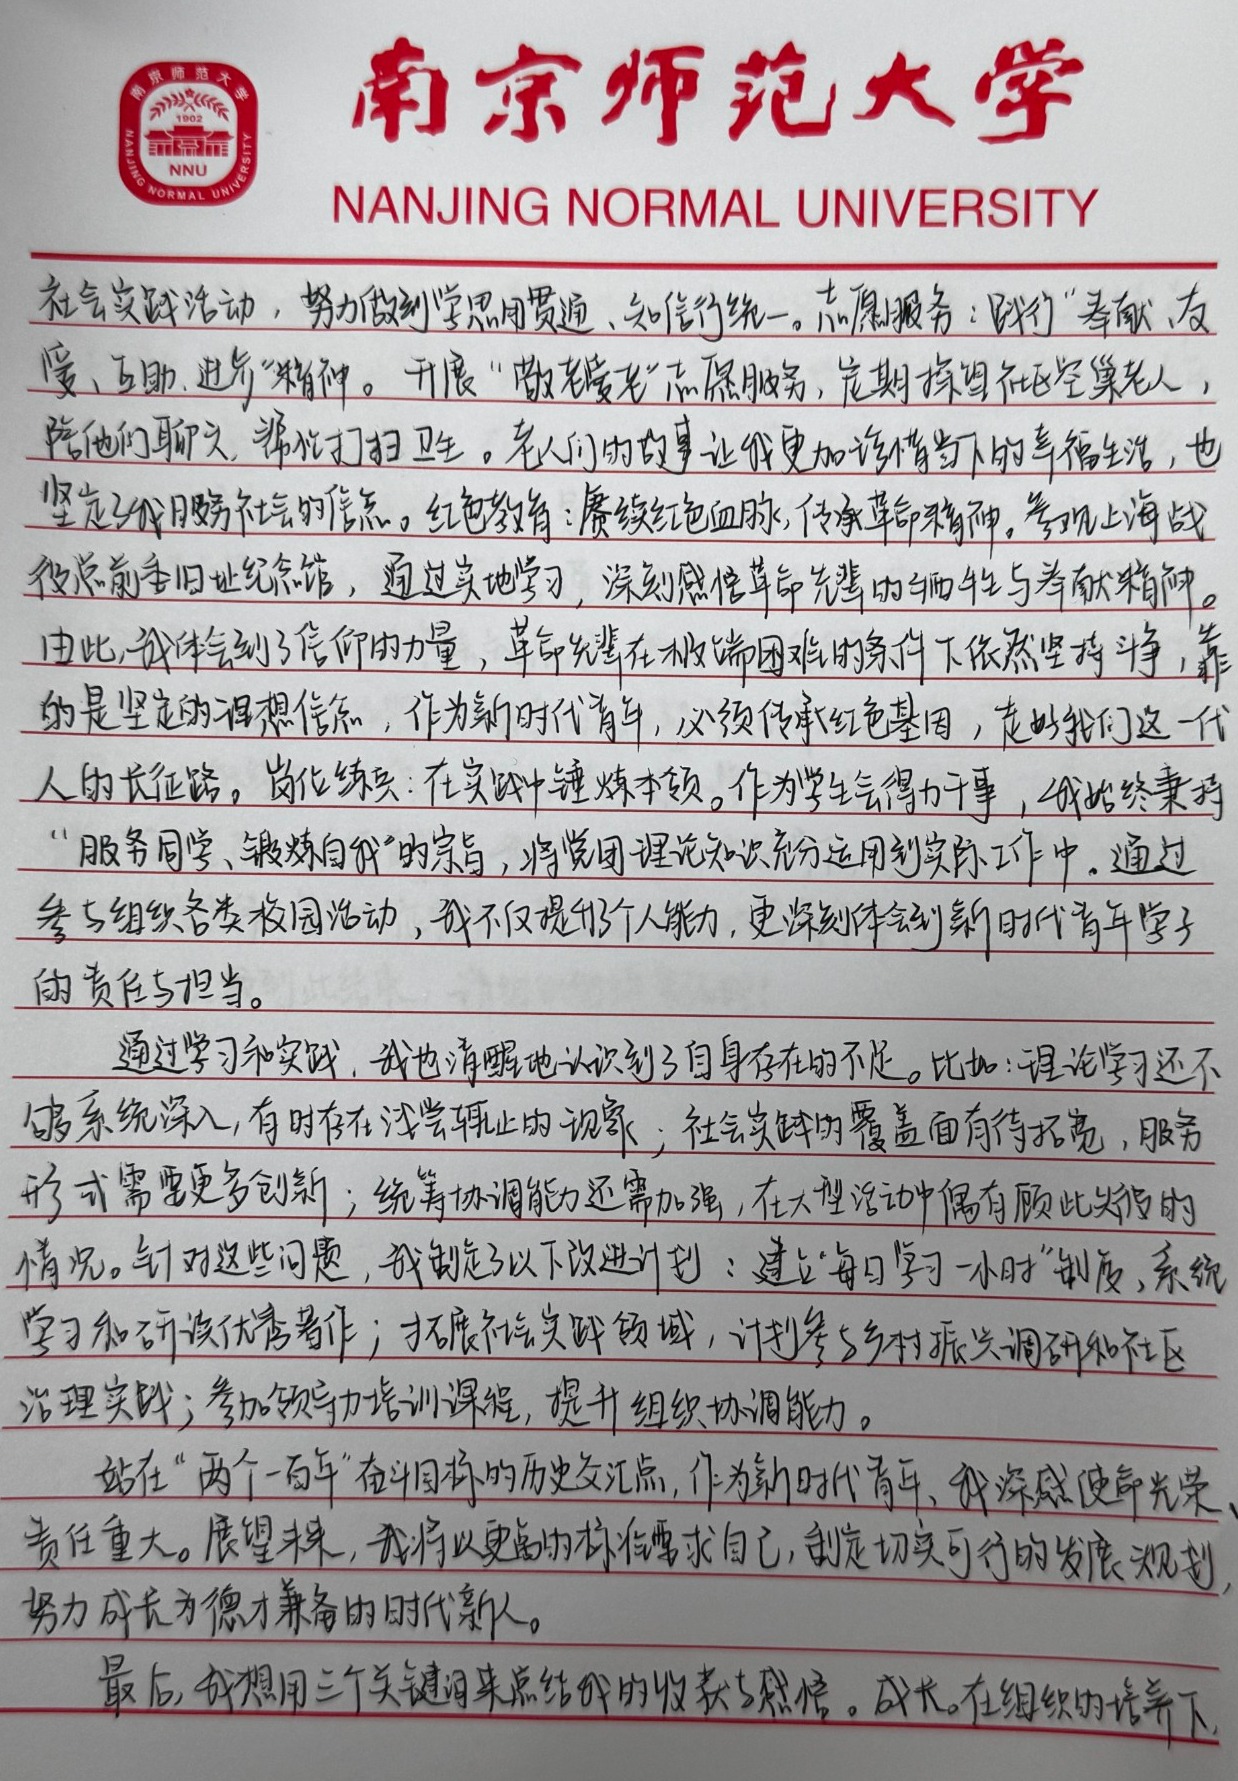 南京师范大学
1902
NNU
NANJING NORMAL UNIVERSITY
南京师范大学
NANJING NORMAL UNIVERSITY
社会实践活动，努力做到学思用贯通、知信行统一。志愿服务：践行“奉献、友
爱、互助、进步”精神。开展“敬老爱老”志愿服务，定期探望社区空巢老人，
陪他们聊天，帮忙打扫卫生。老人们的故事让我更加珍惜当下的幸福生活，也
坚定了我服务社会的信念。红色教育：赓续红色血脉，传承革命精神。参观上海战
役总前委旧址纪念馆，通过实地学习，深刻感悟革命先辈的牺牲与奉献精神。
由此，我体会到了信仰的力量，革命先辈在极端困难的条件下依然坚持斗争，靠
的是坚定的理想信念，作为新时代青年，必须传承红色基因，走好我们这一代
人的长征路。岗位练兵：在实践中锤炼本领。作为学生会得力干事，我始终秉持
“服务同学、锻炼自我”的宗旨，将党团理论知识充分运用到实际工作中。通过
参与组织各类校园活动，我不仅提升了个人能力，更深刻体会到新时代青年学子
的责任与担当。
通过学习和实践，我也清醒地认识到了自身存在的不足。比如：理论学习还不
够系统深入，有时存在浅尝辄止的现象；社会实践的覆盖面有待拓宽，服务
形式需要更多创新；统筹协调能力还需加强，在大型活动中偶有顾此失彼的
情况。针对这些问题，我制定了以下改进计划：建立“每日学习一小时”制度，系统
学习和研读优秀著作；拓展社会实践领域，计划参与乡村振兴调研和社区
治理实践；参加领导力培训课程，提升组织协调能力。
站在“两个一百年”奋斗目标的历史交汇点，作为新时代青年、我深感使命光荣、
责任重大。展望未来，我将以更高的标准要求自己，制定切实可行的发展规划，
努力成长为德才兼备的时代新人。
最后，我想用三个关键词来总结我的收获与感悟。成长。在组织的培养下，